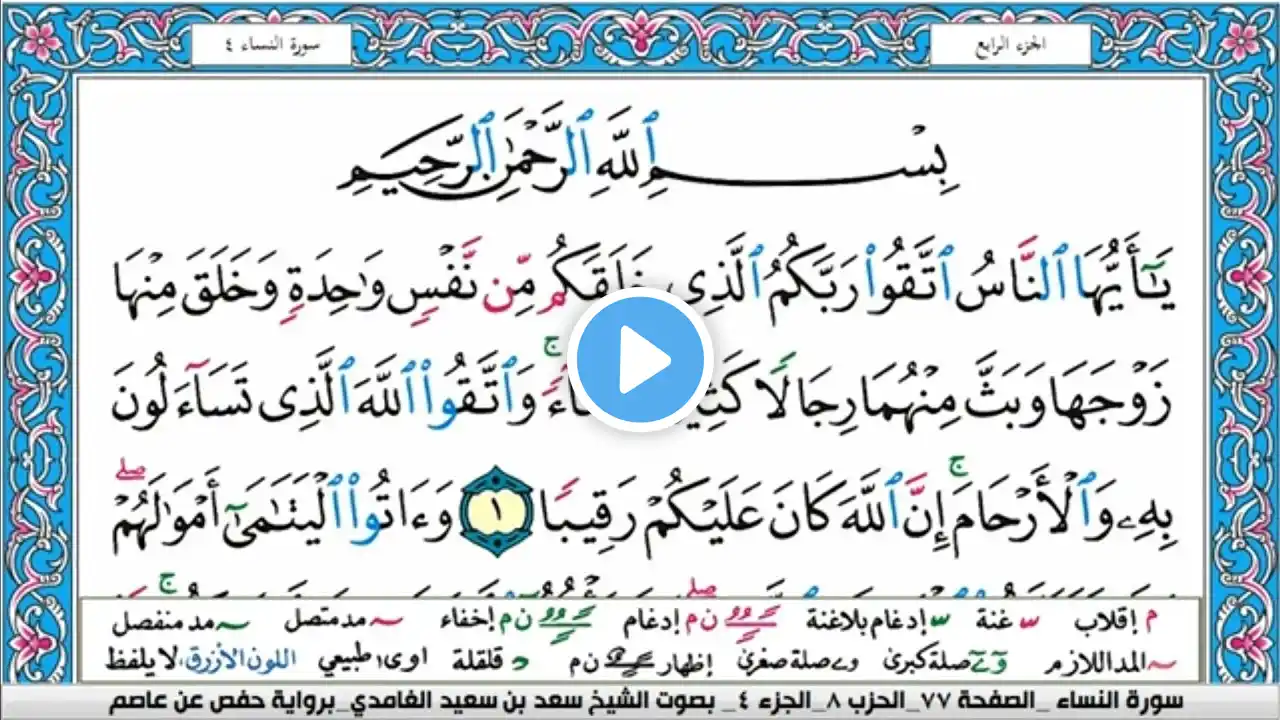 سورة النساء ٤
الجزء الرابع
بِسْمِ ٱللَّهِ ٱلرَّحْمَٰنِ ٱلرَّحِيمِ
يَـٰٓأَيُّهَا ٱلنَّاسُ ٱتَّقُوا۟ رَبَّكُمُ ٱلَّذِى خَلَقَكُم مِّن نَّفْسٍ وَٰحِدَةٍ وَخَلَقَ مِنْهَا
زَوْجَهَا وَبَثَّ مِنْهُمَا رِجَالًا وَٱتَّقُوا۟ ٱللَّهَ ٱلَّذِى تَسَآءَلُونَ
بِهِۦ وَٱلْأَرْحَامَ ۚ إِنَّ ٱللَّهَ كَانَ عَلَيْكُمْ رَقِيبًا ١ وَءَاتُوا۟ ٱلْيَتَـٰمَىٰٓ أَمْوَٰلَهُمْ ۖ
م إقلاب ـس غنة ـس إدغام بلاغنة ن م إدغام ن م إخفاء ~ مد متصل ~ مد منفصل
~ المد اللازم صلة كبرى وے صلة صغرى ن م إظهار د قلقلة اوى طبيعي اللون الأزرق، لا يلفظ
سورة النساء _الصفحة ٧٧_الحزب ٨_الجزء ٤_ بصوت الشيخ سعد بن سعيد الغامدي_برواية حفص عن عاصم